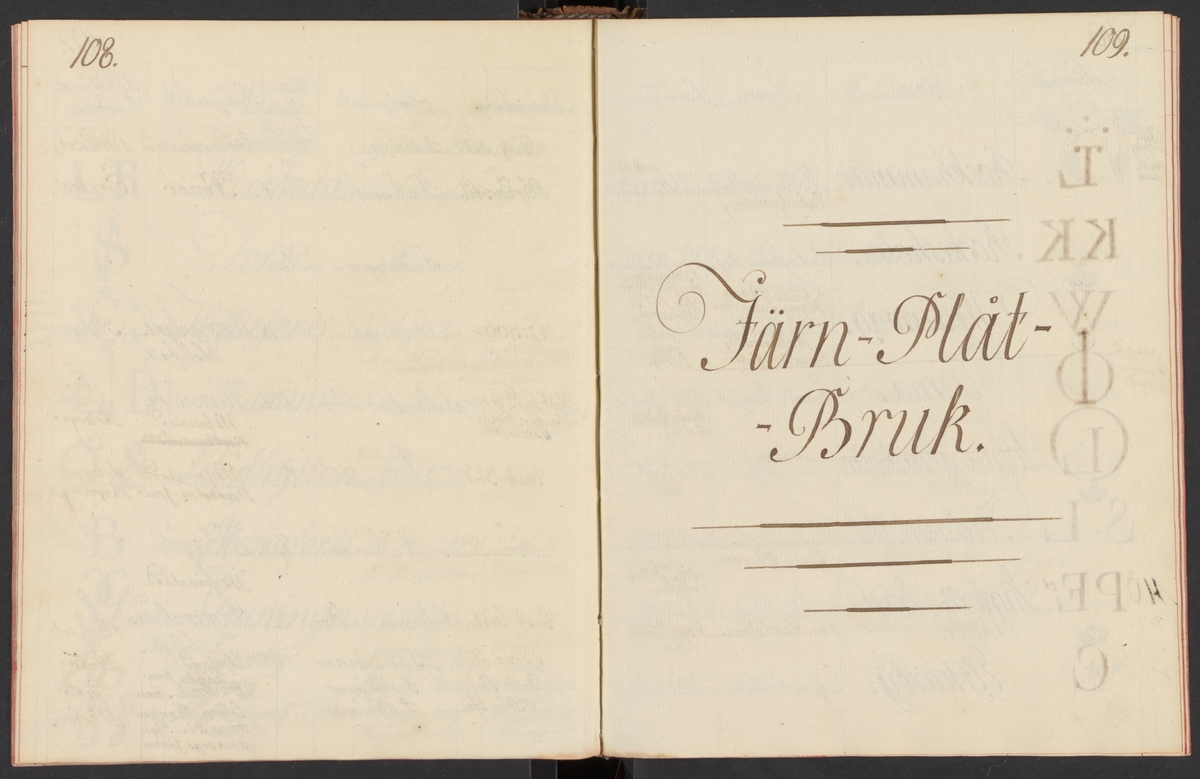 108.
109.
Järn-Plåt-
-Bruk.